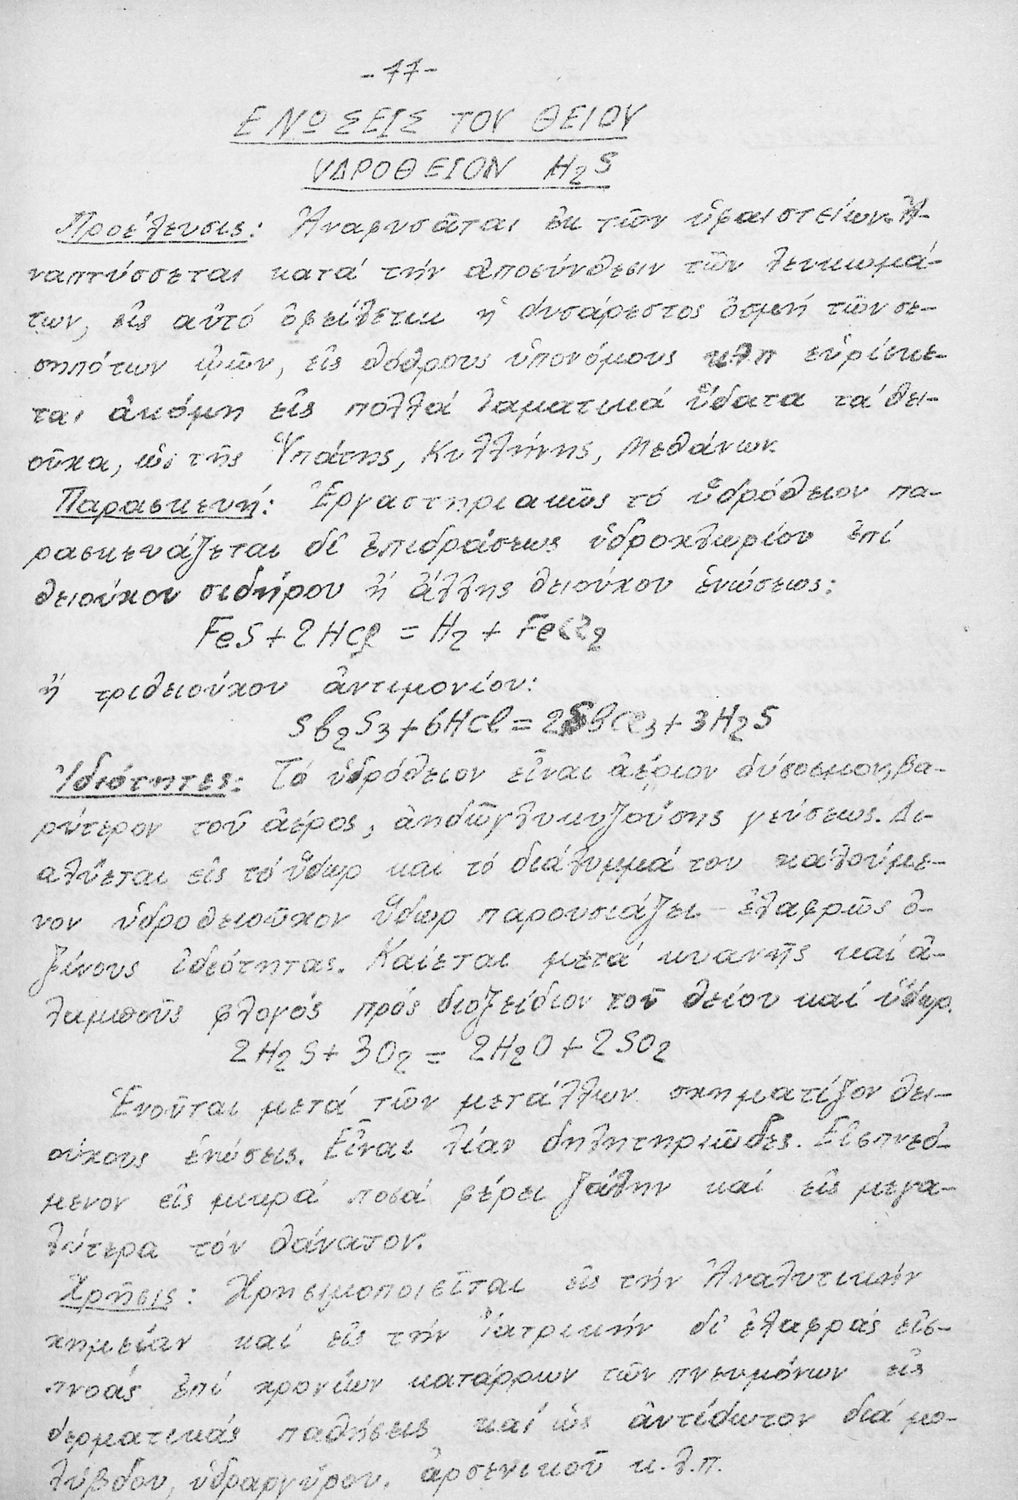 -77-
ΕΝΩΣΕΙΣ ΤΟΥ ΘΕΙΟΥ
ΥΔΡΟΘΕΙΟΝ H2S
Προέλευσις: Ἀναφυσᾶται ἐκ τῶν ὑφαιστείων. Ἀ-
ναπτύσσεται κατά τήν ἀποσύνθεσιν τῶν λευκωμά-
των, εἰς αὐτό ὀφείλεται ἡ δυσάρεστος ὀσμή τῶν σε-
σηπότων ᾠῶν, εἰς βόθρους ὑπονόμους κλπ εὑρίσκε-
ται ἀκόμη εἰς πολλά ἰαματικά ὕδατα τά θει-
οῦχα, ὡς τῆς Ὑπάτης, Κυλλήνης, Μεθάνων.
Παρασκευή: Ἐργαστηριακῶς τό ὑδρόθειον πα-
ρασκευάζεται δι' ἐπιδράσεως ὑδροχλωρίου ἐπί
θειούχου σιδήρου ἤ ἄλλης θειούχου ἑνώσεως:
FeS + 2HCl = H2 + FeCl2
ἤ τριθειούχου ἀντιμονίου:
Sb2S3 + 6HCl = 2SBCl3 + 3H2S
Ἰδιότητες: Τό ὑδρόθειον εἶναι ἀέριον δύσοσμον, βα-
ρύτερον τοῦ ἀέρος, ἀηδῶς γλυκυζούσης γεύσεως. Δι-
αλύεται εἰς τό ὕδωρ καί τό διάλυμμά του καλούμε-
νον ὑδροθειοῦχον ὕδωρ παρουσιάζει ἐλαφρῶς ὀ-
ξίνους ἰδιότητας. Καίεται μετά κυανῆς καί ἀ-
λαμποῦς φλογός πρός διοξείδιον τοῦ θείου καί ὕδωρ.
2H2S + 3O2 = 2H2O + 2SO2
Ἑνοῦται μετά τῶν μετάλλων σχηματίζον θει-
ούχους ἑνώσεις. Εἶναι λίαν δηλητηριῶδες. Εἰσπνεό-
μενον εἰς μικρά ποσά φέρει ζάλην καί εἰς μεγα-
λύτερα τόν θάνατον.
Χρῆσις: Χρησιμοποιεῖται εἰς τήν Ἀναλυτικήν
χημείαν καί εἰς τήν Ἰατρικήν δι' ἐλαφράς εἰσ-
πνοάς ἐπί χρονίων κατάρρων τῶν πνευμόνων εἰς
δερματικάς παθήσεις καί ὡς ἀντίδωτον διά μο-
λύβδου, ὑδραργύρου, ἀρσενικοῦ κ.λ.π.